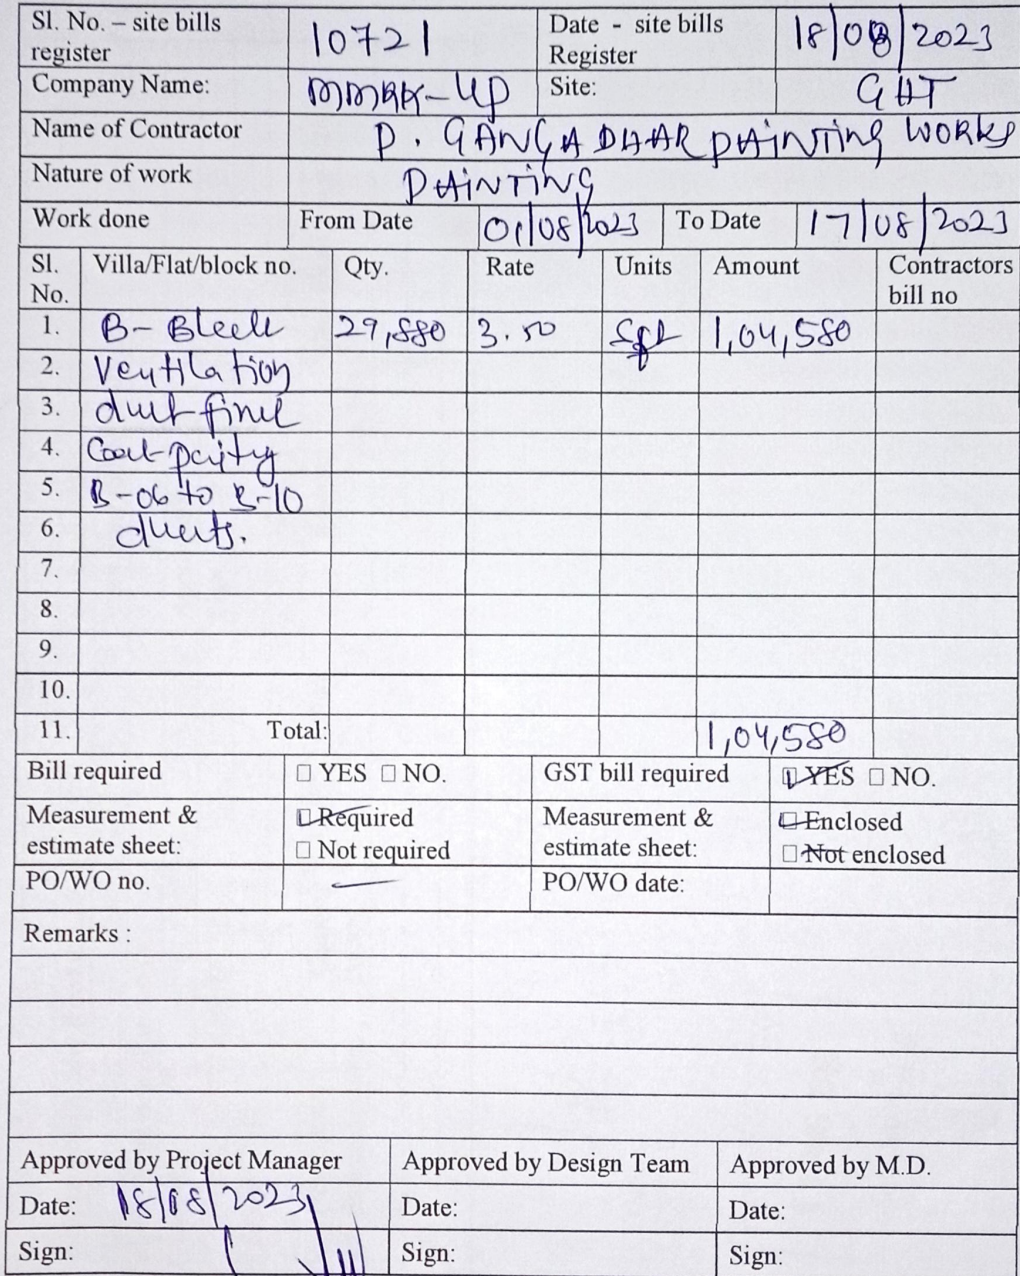 Sl. No. – site bills register 10721 Date - site bills Register 18/08/2023
Company Name: MMRK-UP Site: GHT
Name of Contractor P. GANGADHAR PAiNTiNG WORKS
Nature of work PAiNTiNG
Work done From Date 01/08/2023 To Date 17/08/2023
Sl. No. Villa/Flat/block no. Qty. Rate Units Amount Contractors bill no
1. B- Block 29,880 3.50 Sft 1,04,580
2. Ventilation
3. duct final
4. Coat
5. B-06 to B-10
6. ducts.
7.
8.
9.
10.
11. Total: 1,04,580
Bill required □ YES □ NO. GST bill required □ YES □ NO.
Measurement & estimate sheet: □ Required □ Not required Measurement & estimate sheet: □ Enclosed □ Not enclosed
PO/WO no. PO/WO date:
Remarks :
Approved by Project Manager Approved by Design Team Approved by M.D.
Date: 18/08/2023 Date: Date:
Sign: Sign: Sign: